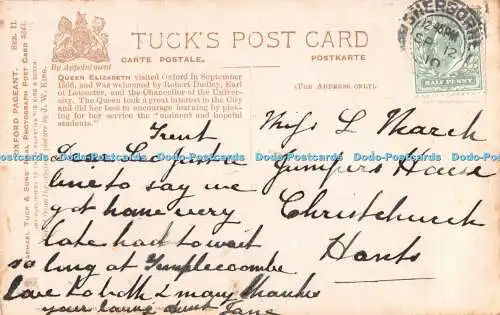 TUCK'S POST CARD
CARTE POSTALE.
POSTKARTE
By Appointment
QUEEN ELIZABETH visited Oxford in September
1566, and was welcomed by Robert Dudley, Earl
of Leicester, and the Chancellor of the Univer-
sity. The Queen took a great interest in the City
and did her best to encourage learning by pley-
ing for her service the "eminent and hopeful
students."
(FOR ADDRESS ONLY)
OXFORD PAGEANT. SER. II.
RAPHAEL TUCK & SONS' REAL PHOTOGRAPH POST CARD
SHERBORNE
12.45PM
HALF PENNY
Trent
Dear L just a
line to say we
got home very
late had to wait
so long at Templecombe
love to both & many thanks
your loving Aunt Jane
Miss L March
Jumpers House
Christchurch
Hants
Dodo-Postcards Dodo-Postcards Dodo-Postcards Dodo-Postcards Dodo-Postcards